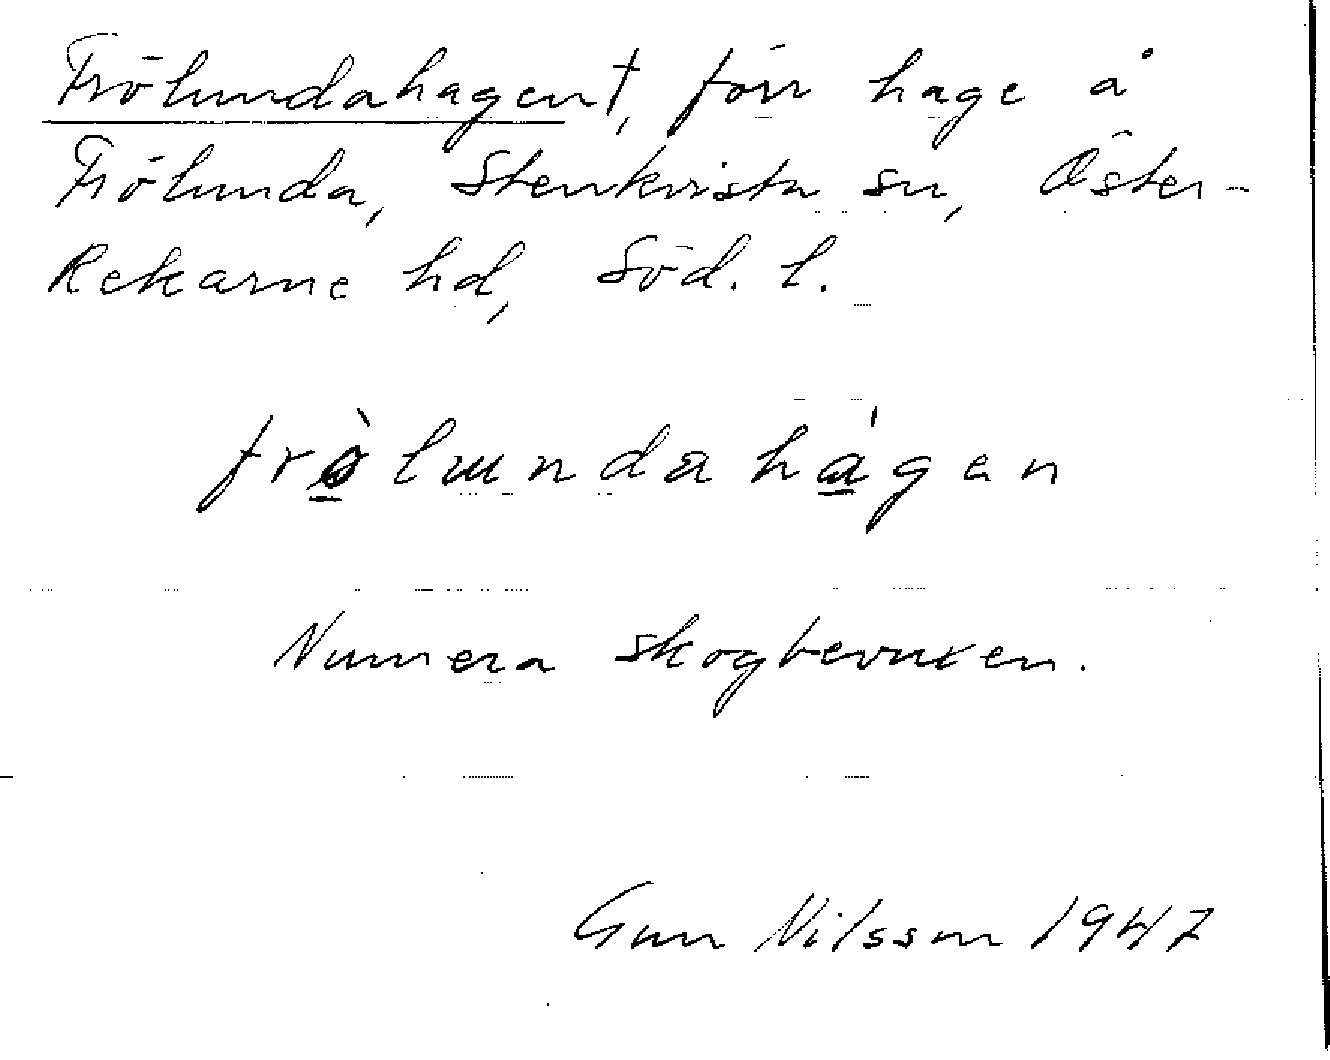 Frölundahagen†, förr hage å
Frölunda, Stenkvista sn, Öster-
Rekarne hd, Söd. l.
frø̀lɯndahágan
Numera skogbevuxen.
Gun Nilsson 1947